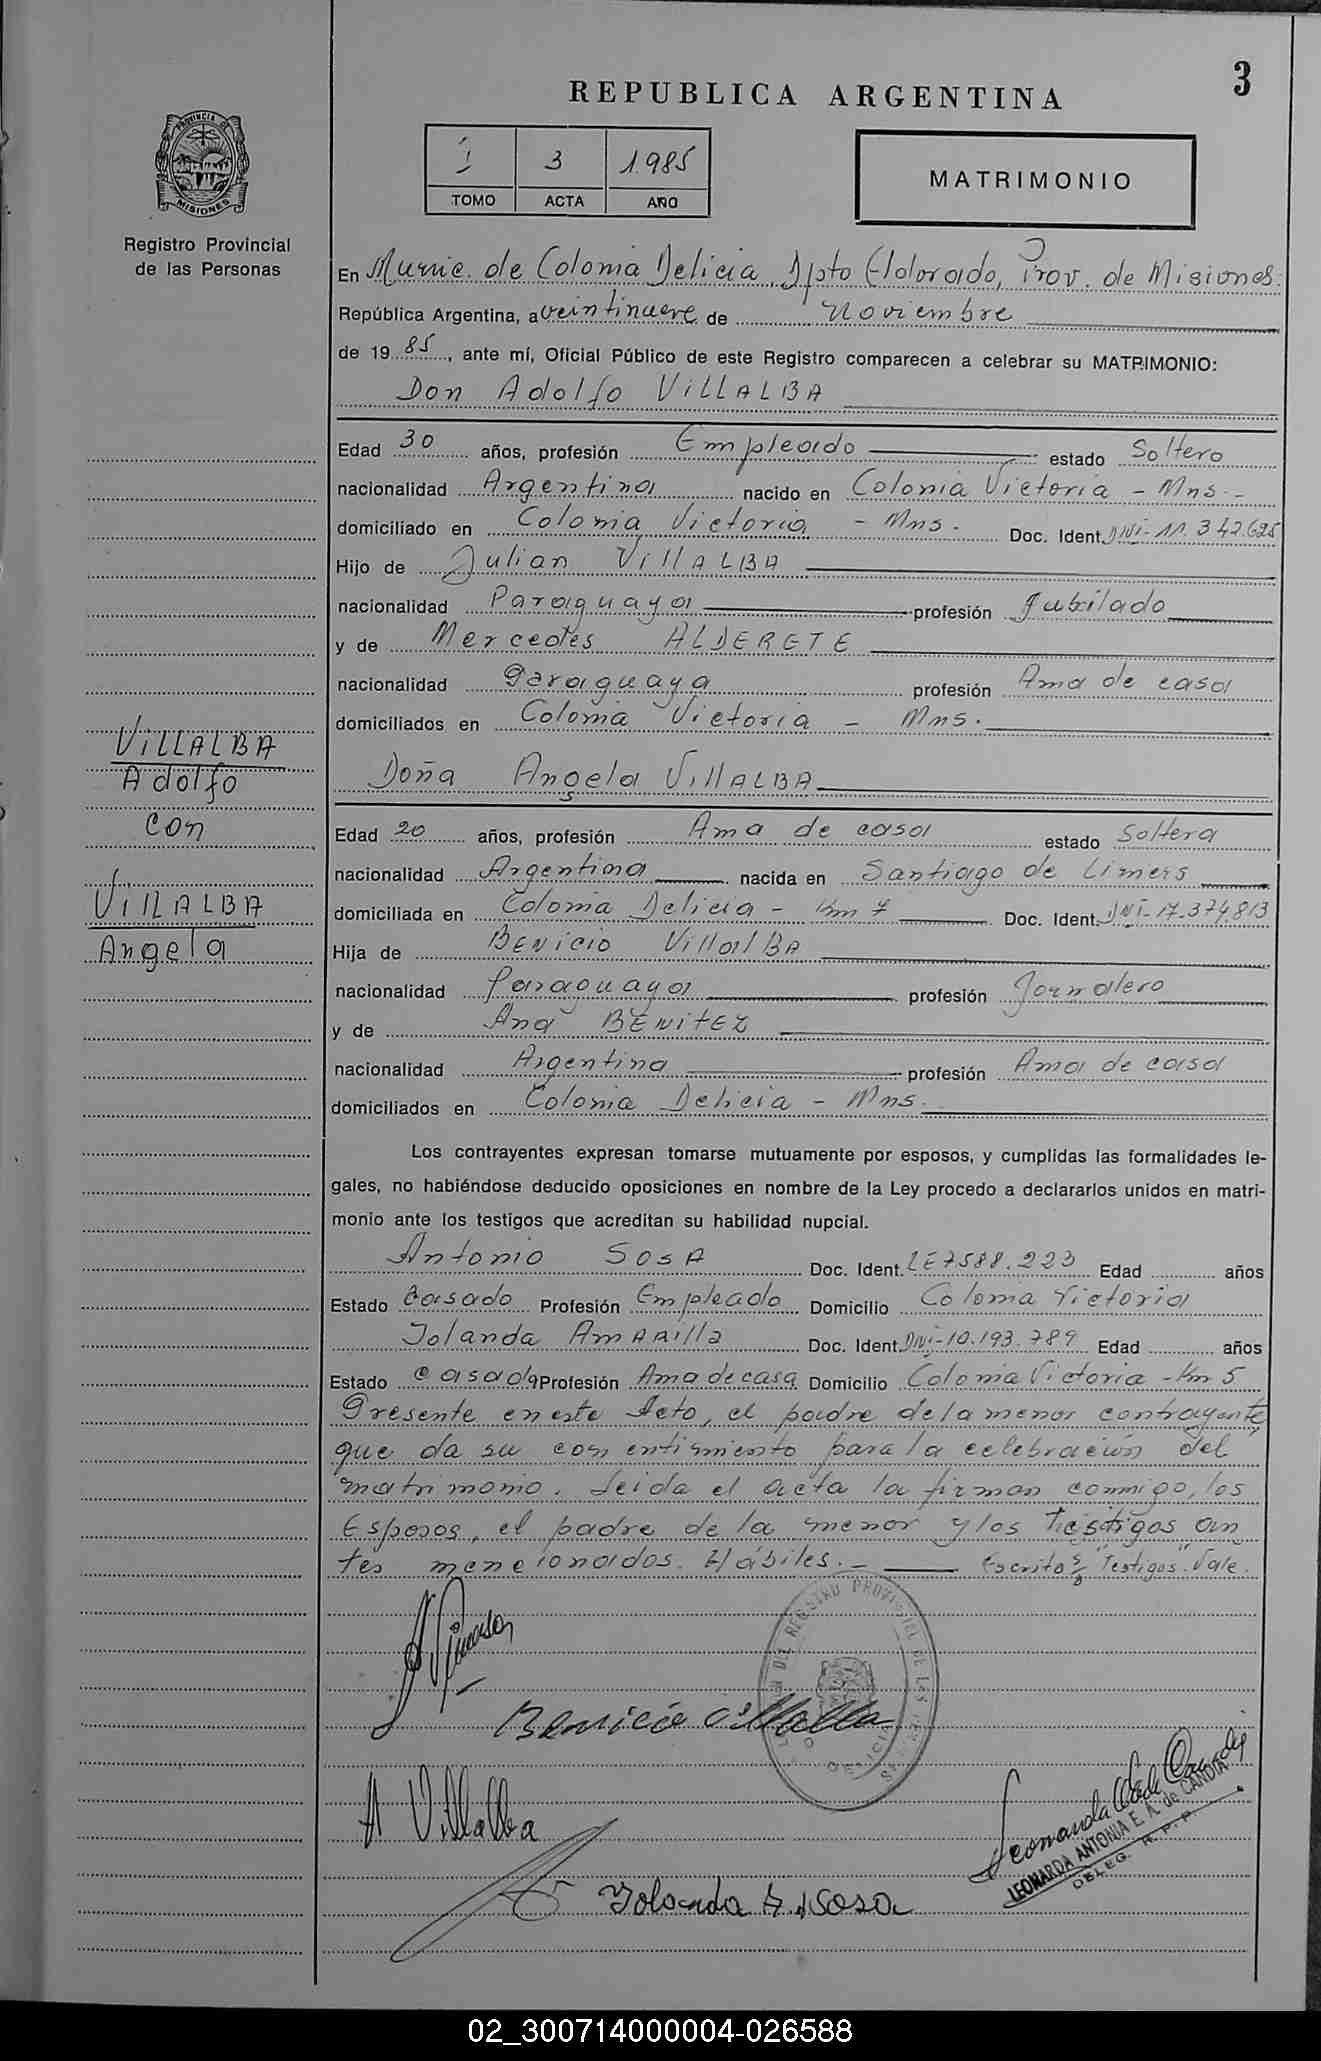 3
REPUBLICA ARGENTINA
PROVINCIA DE
MISIONES
Registro Provincial
de las Personas
I 3 1.985
TOMO ACTA AÑO
MATRIMONIO
En Munic. de Colonia Delicia, Dpto Eldorado, Prov. de Misiones.
República Argentina, a veintinueve de noviembre
de 1985, ante mí, Oficial Público de este Registro comparecen a celebrar su MATRIMONIO:
Don Adolfo VILLALBA
Edad 30 años, profesión Empleado estado Soltero
nacionalidad Argentina nacido en Colonia Victoria - Mns.-
domiciliado en Colonia Victoria - Mns. Doc. Ident. DNI-11.342.625
Hijo de Julian VillALBA
nacionalidad Paraguaya profesión Jubilado
y de Mercedes ALDERETE
nacionalidad Paraguaya profesión Ama de casa
domiciliados en Colonia Victoria - Mns.
VILLALBA
Adolfo
con
VILLALBA
Angela
Doña Angela VillALBA
Edad 20 años, profesión Ama de casa estado Soltera
nacionalidad Argentina nacida en Santiago de Liniers
domiciliada en Colonia Delicia - Km 7 Doc. Ident. DNI-17.374.813
Hija de BENicio VillalBA
nacionalidad Paraguaya profesión Jornalero
y de Ana BENiTEZ
nacionalidad Argentina profesión Ama de casa
domiciliados en Colonia Delicia - Mns.
Los contrayentes expresan tomarse mutuamente por esposos, y cumplidas las formalidades le-
gales, no habiéndose deducido oposiciones en nombre de la Ley procedo a declararlos unidos en matri-
monio ante los testigos que acreditan su habilidad nupcial.
Antonio SOSA Doc. Ident. LE 7588.223 Edad años
Estado Casado Profesión Empleado Domicilio Colonia Victoria
Iolanda AmARIlla Doc. Ident. DNI-10.193.789 Edad años
Estado casada Profesión Ama de casa Domicilio Colonia Victoria - Km 5
Presente en este Acto, el padre de la menor contrayente,
que da su consentimiento para la celebración del
matrimonio. Leida el acta la firman conmigo, los
Esposos, el padre de la menor y los testigos an
tes mencionados. Hábiles.- Escrito s/b "Testigos". Vale.
DEL REGISTRO PROVINCIAL DE LAS PERSONAS
DELICIA
Benicio Villalba
A Villalba
Iolanda A. de Sosa
LEONARDA ANTONIA E. A. de CANDIA
DELEG. R. P. P.
02_300714000004-026588